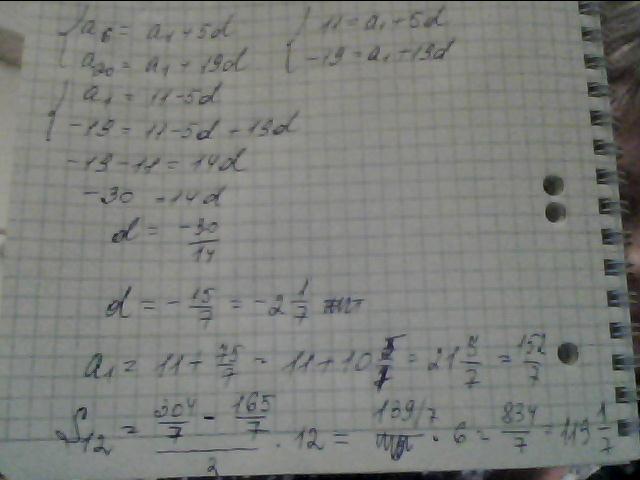 { a₆ = a₁ + 5d { 11 = a₁ + 5d
a₂₀ = a₁ + 19d -19 = a₁ + 19d
{ a₁ = 11 - 5d
-19 = 11 - 5d + 19d
-19 - 11 = 14d
-30 = 14d
d = -30/14
d = - 15/7 = -2 1/7
a₁ = 11 + 75/7 = 11 + 10 5/7 = 21 5/7 = 152/7
S₁₂ = (304/7 - 165/7)/2 · 12 = 139/7 · 6 = 834/7 = 119 1/7